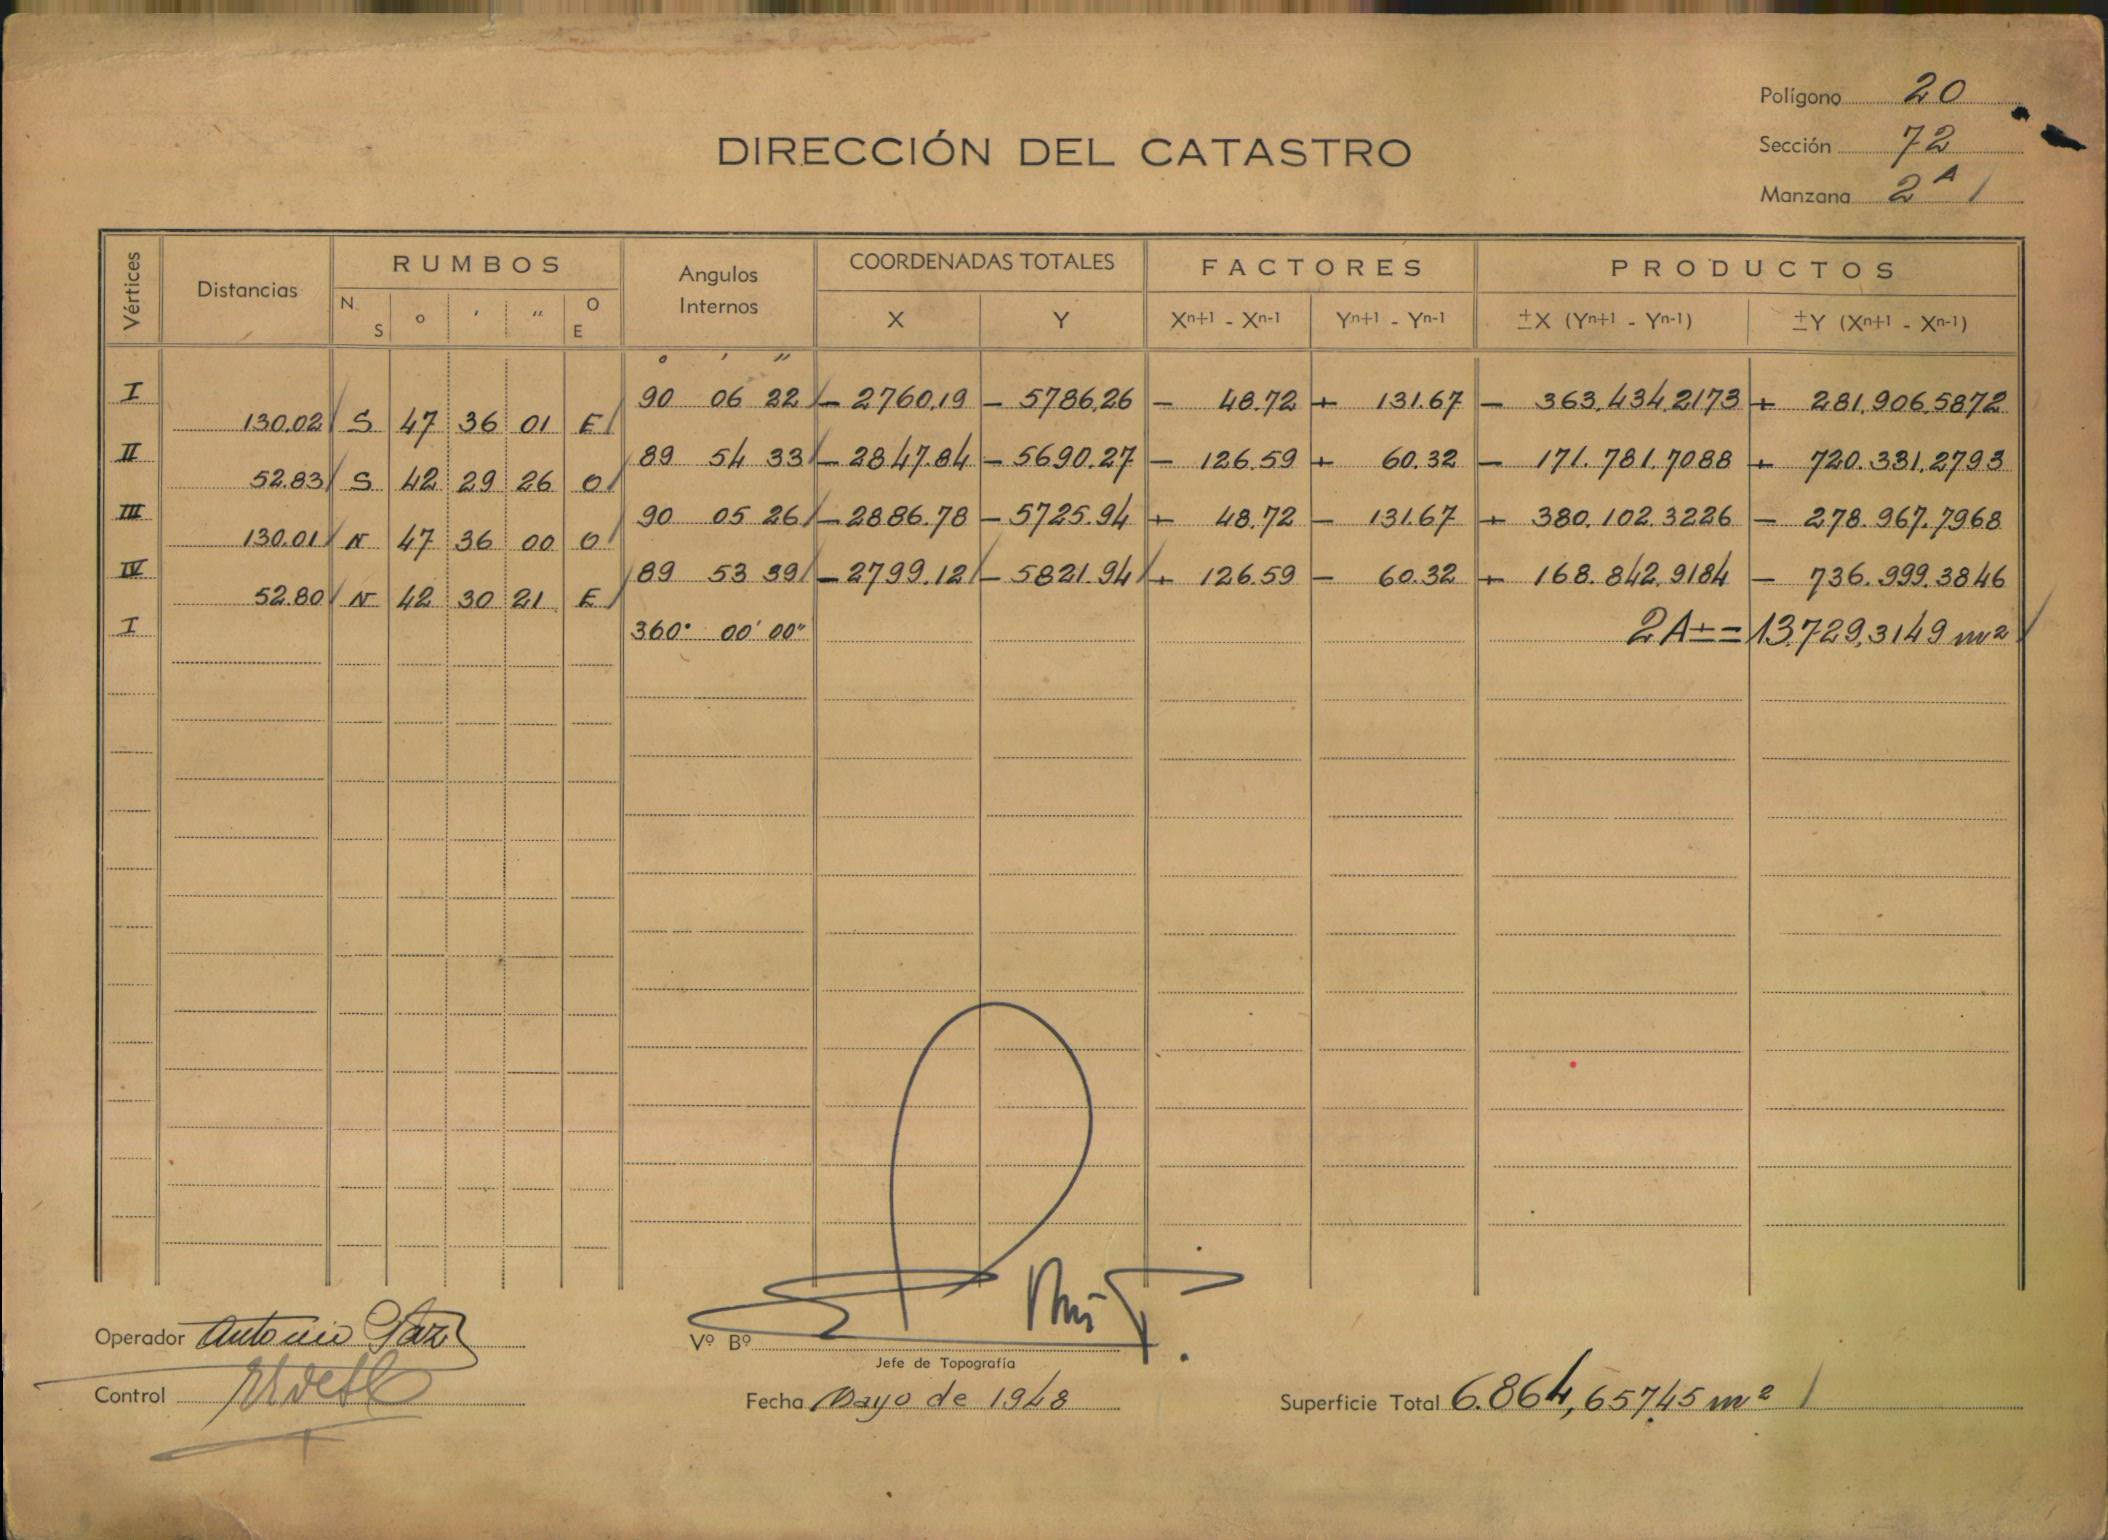 Polígono 20
DIRECCIÓN DEL CATASTRO
Sección 72
Manzana 2A
Vértices Distancias RUMBOS Angulos Internos COORDENADAS TOTALES FACTORES PRODUCTOS
N. S o ' " O E X Y Xn+1 - Xn-1 Yn+1 - Yn-1 ±X (Yn+1 - Yn-1) ±Y (Xn+1 - Xn-1)
o ' "
I 90 06 22 - 2760.19 - 5786.26 - 48.72 + 131.67 - 363.434.2173 + 281.906.5872
130.02 S 47 36 01 E
II 89 54 33 - 2847.84 - 5690.27 - 126.59 + 60.32 - 171.781.7088 + 720.331.2793
52.83 S 42 29 26 O
III 90 05 26 - 2886.78 - 5725.94 + 48.72 - 131.67 + 380.102.3226 - 278.967.7968
130.01 N 47 36 00 O
IV 89 53 39 - 2799.12 - 5821.94 + 126.59 - 60.32 + 168.842.9184 - 736.999.3846
52.80 N 42 30 21 E
I 360° 00' 00" 2A±= 13.729,3149 m²
Operador Antonio
Vº Bº
Jefe de Topografía
Control
Fecha Mayo de 1948
Superficie Total 6.864,65745 m²